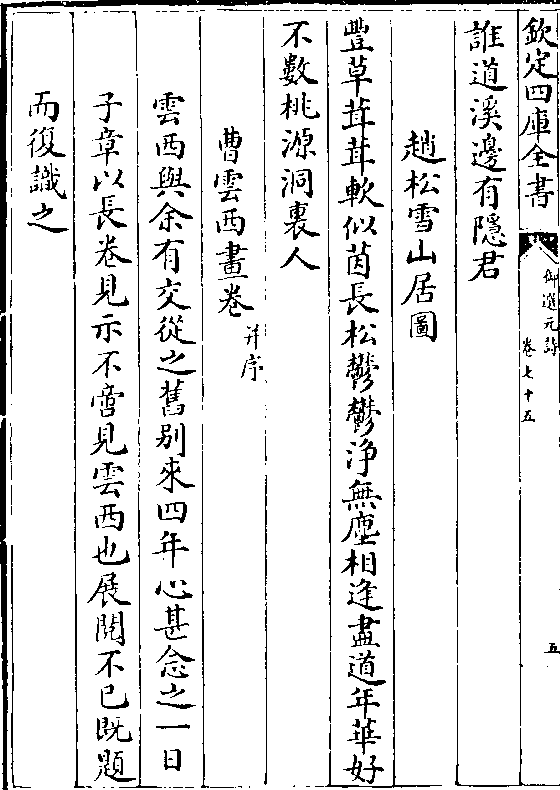 欽定四庫全書
御選元詩
卷七十五
五
誰道溪邊有隱君
趙松雪山居圖
豐草茸茸軟似茵長松鬱鬱浄無塵相逢盡道年華好
不數桃源洞裏人
曹雲西畫卷并序
雲西與余有交從之舊别來四年心甚念之一日
子章以長卷見示不啻見雲西也展閱不已既題
而復識之